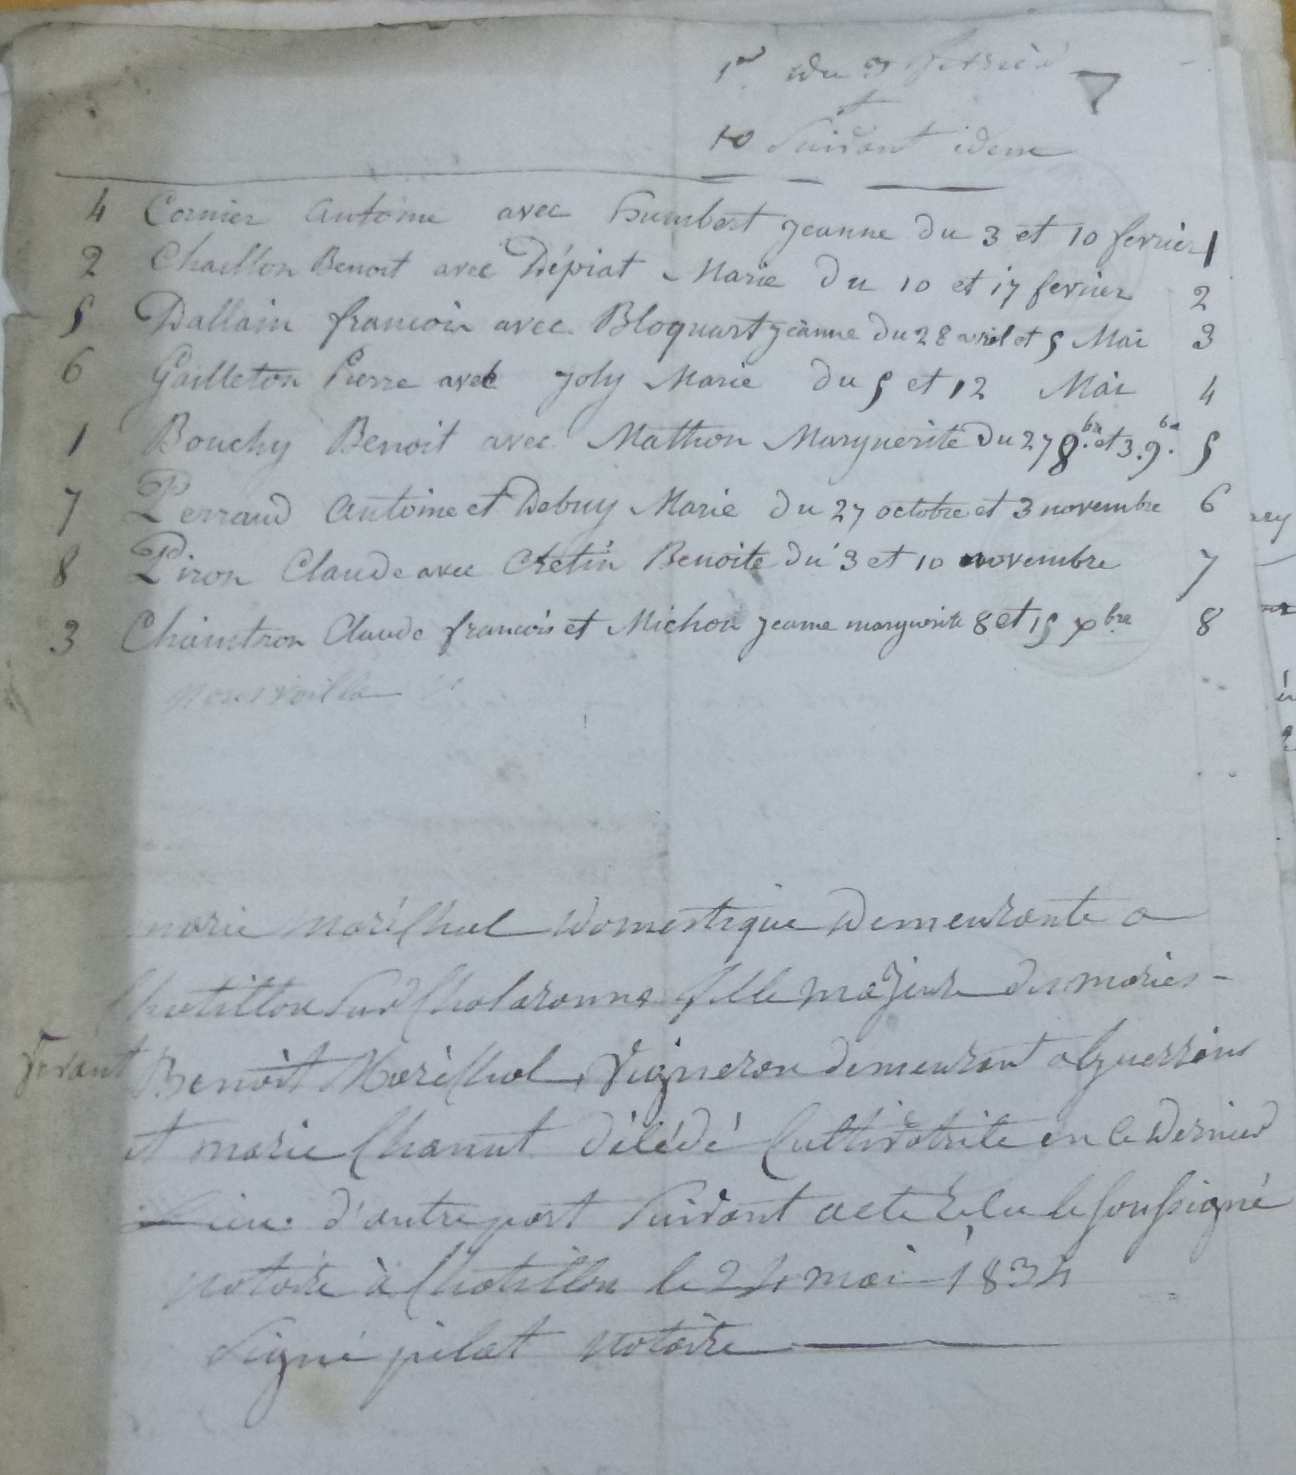 1er du 3 fevrier
et
10 suivant idem
4 Cornier antoine avec humbert jeanne du 3 et 10 fevrier 1
2 Chaillon Benoit avec Dépiat Marie du 10 et 17 fevrier 2
5 Dallain francois avec Bloquart jeanne du 28 avril et 5 Mai 3
6 Gailleton Pierre avec joly Marie du 5 et 12 Mai 4
1 Bouchy Benoit avec Mathon Marguerite du 27 8.bre et 3.9.bre 5
7 Perraud antoine et Debuy Marie du 27 octobre et 3 novembre 6
8 Piron Claude avec Cretin Benoite du 3 et 10 novembre 7
3 Chaintron Claude francois et Michon jeanne marguerite 8 et 15 xbre 8
marie maréchal domestique demeurante a
chatillon sur chalaronne fille majeure des maries
vivant Benoit Maréchal, vigneron demeurant a guerreins
et marie Chanut décédé cultivatrice en ce dernier
lieu d'autre part suivant acte le soussigné
notaire à Chatillon le 24 mai 1834
signé pilat notaire